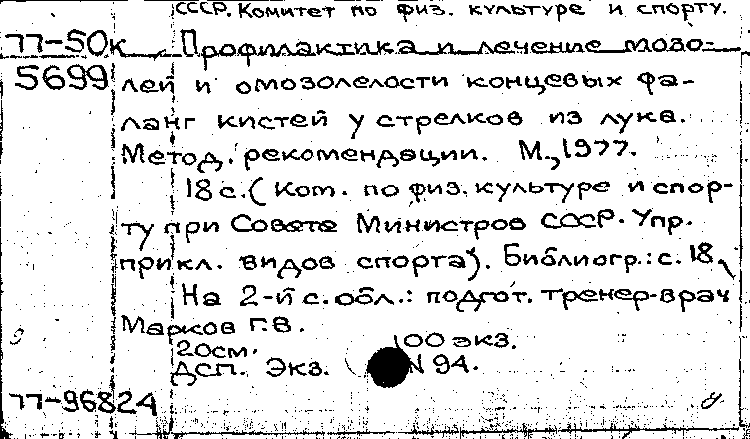 СССР. Комитет по физ. культуре и спорту.
77-50к Профилактика и лечение мозо-
5699 лей и омозолелости концевых фа-
ланг кистей у стрелков из лука.
Метод. рекомендации. М., 1977.
18 с. (Ком. по физ. культуре и спор-
ту при Совете Министров СССР. Упр.
прикл. видов спорта). Библиогр.: с. 18.
На 2-й с. обл.: подгот. тренер-врач
Марков Г.В.
20см. 100 экз.
ДСП. Экз. N 94.
77-96824